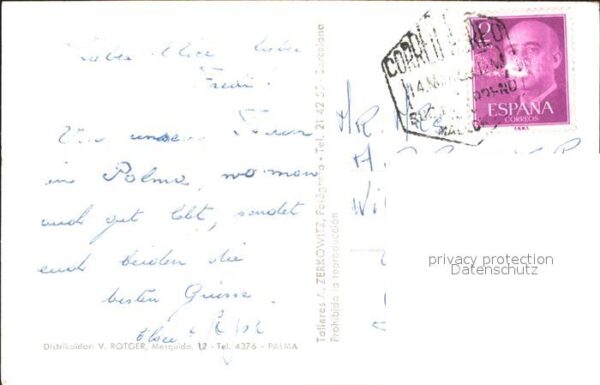 Liebe Alice, lieber
Fredi.
Von unseren Ferien
in Palma, wo man
auch gut lebt, sendet
euch beiden die
besten Grüsse.
Distribuidor: V. ROTGER, Marquida, 12 - Tel. 4376 - PALMA
Talleres A. ZERKOWITZ, Fotógrafo - Tel. 21 42 Barcelona
Prohibida la reproducción
CORREO AEREO
MALLORCA
2
ESPAÑA
CORREOS
F.N.M.T.
privacy protection
Datenschutz